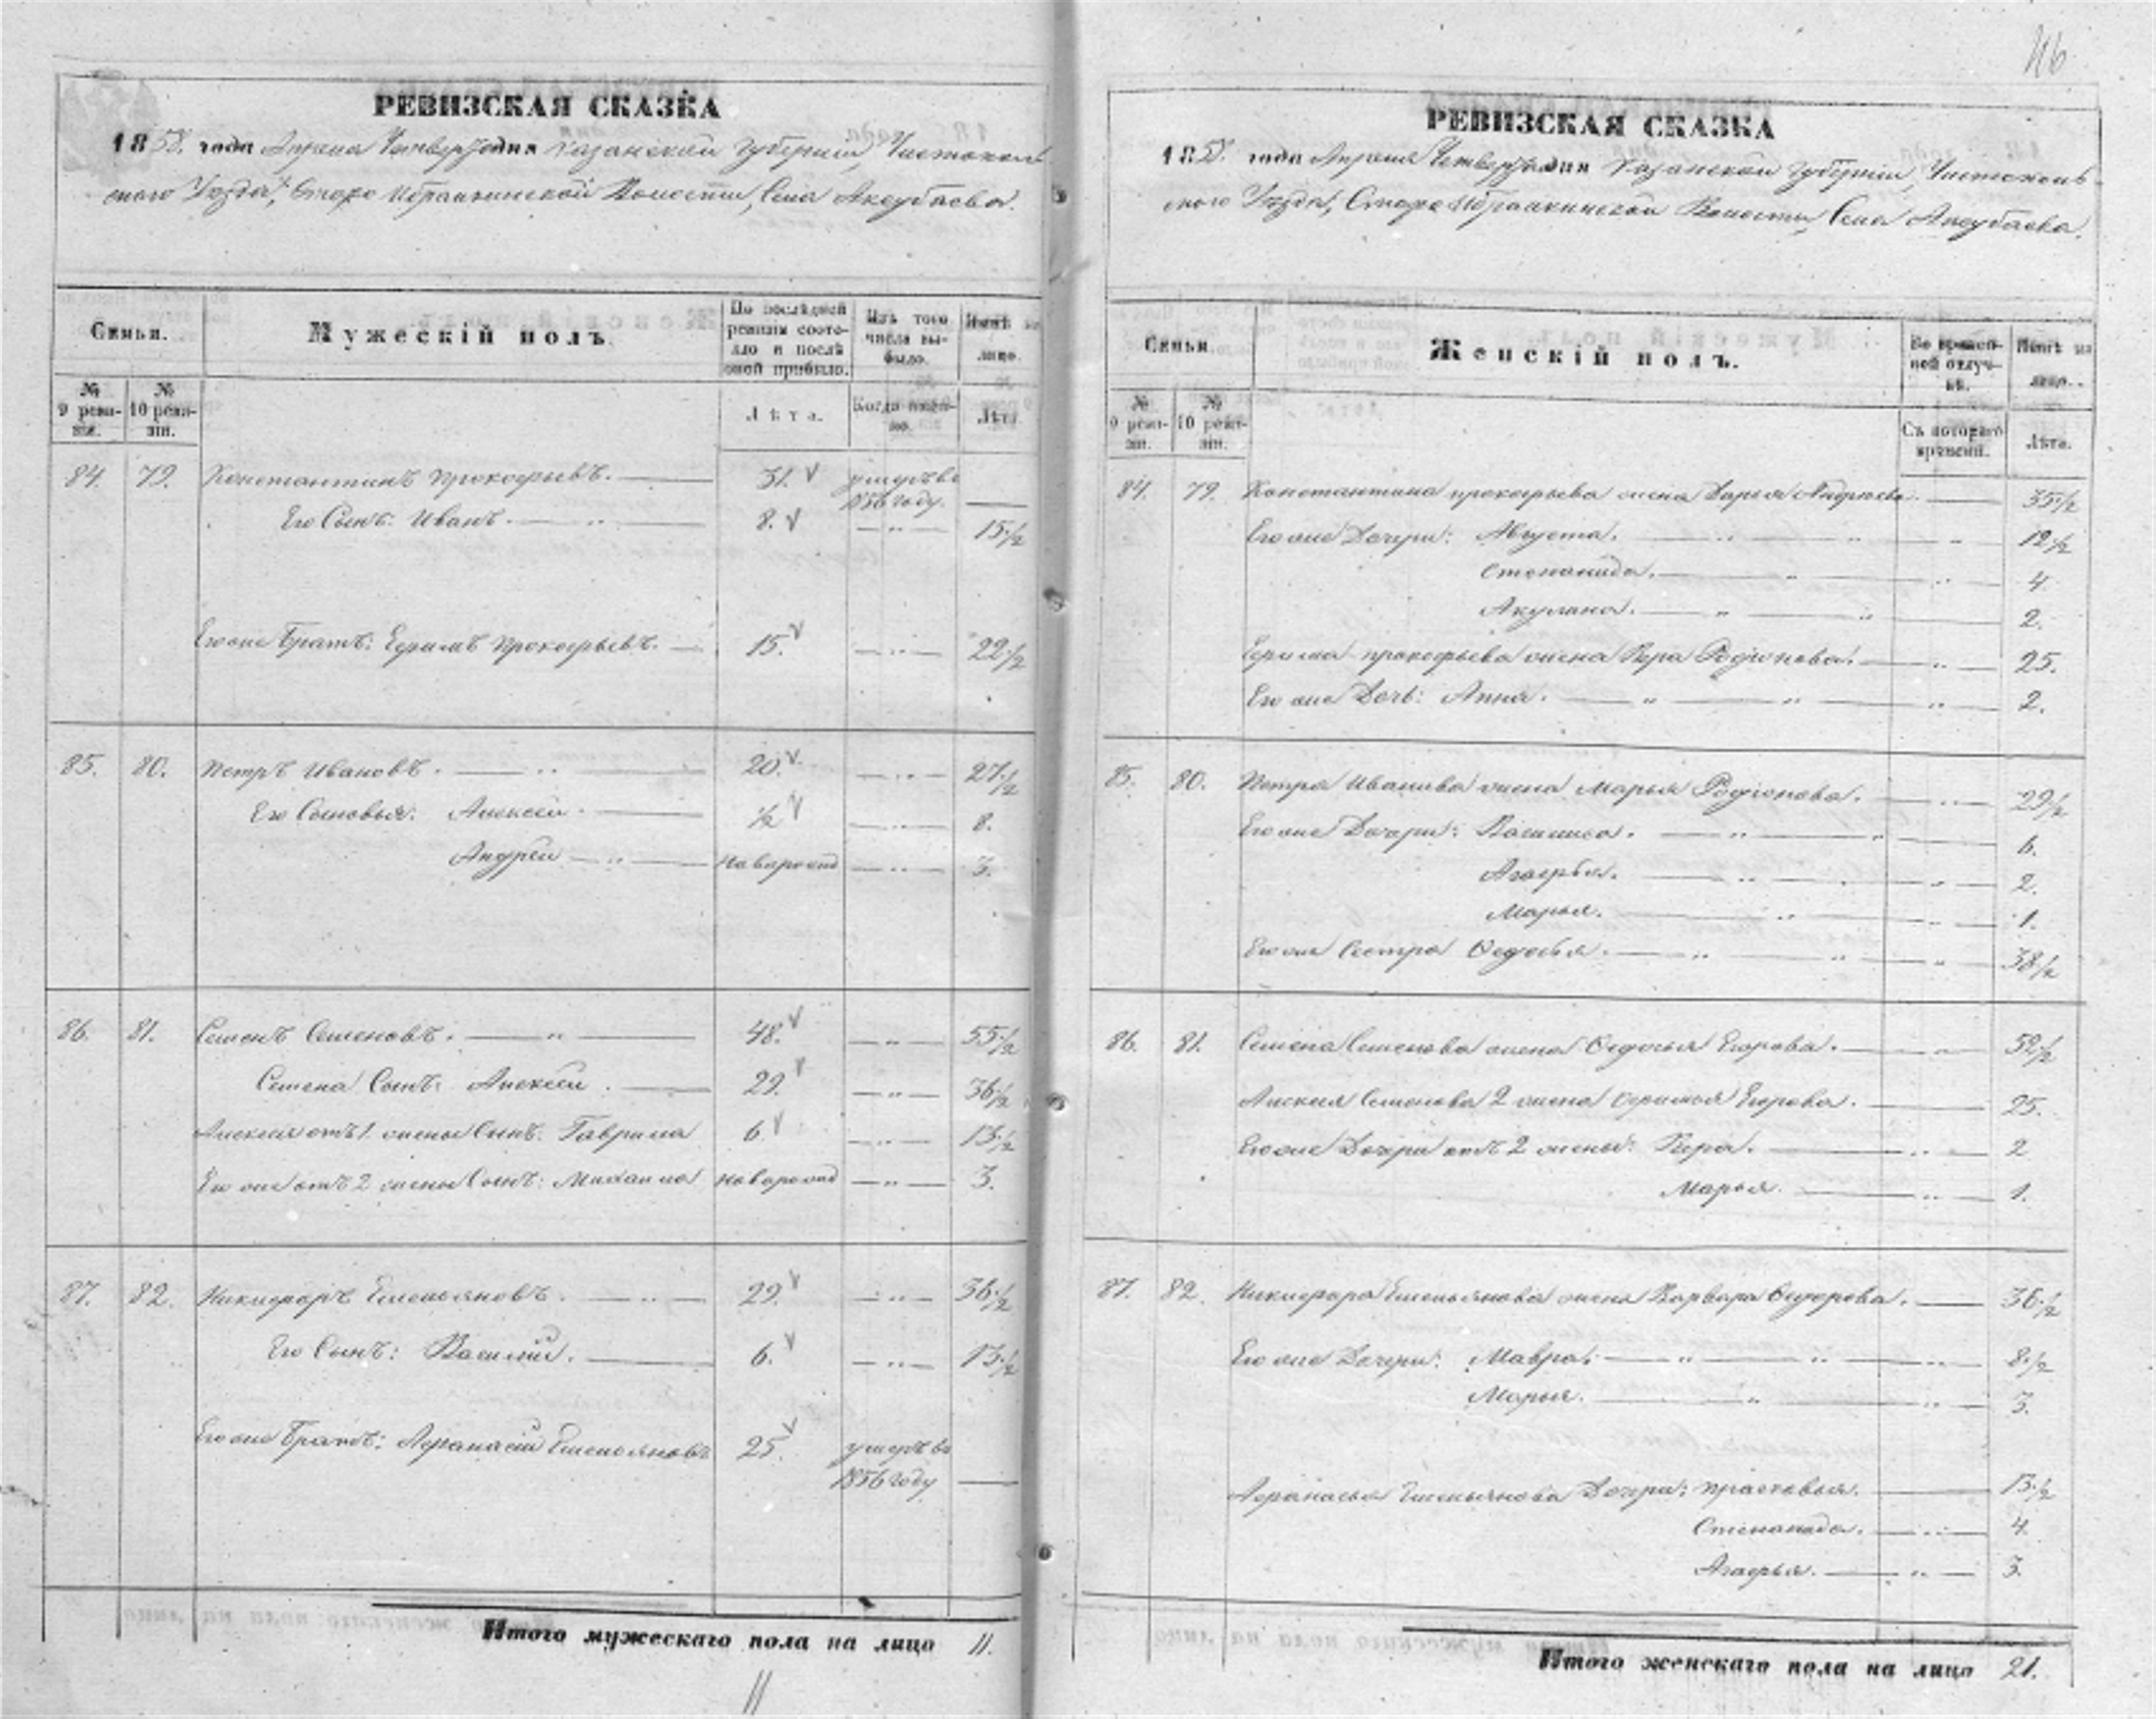 46
РЕВИЗСКАЯ СКАЗКА
1858. года Апреля Четвертаго дня Казанской Губернiи, Чистополь
скаго Уезда, Старо Ибрайкинской Волости, Села Аксубаева.
Семьи.
Мужескiй полъ.
По последней ревизiи состояло и после оной прибыло.
Изъ того числа выбыло.
Ныне на лицо.
№ 9 ревизiи.
№ 10 ревизiи.
Лета.
Когда именно.
Лета.
84. 79. Константинъ Прокофьевъ. 31. умеръ въ 1856 году.
Его Сынъ: Иванъ. 8. 15½
Его же Братъ: Ефимъ Прокофьевъ. 15. 22½
85. 80. Петръ Ивановъ. 20. 27½
Его Сыновья: Алексей. ½ 8.
Андрей новорожд 3.
86. 81. Семенъ Семеновъ. 48. 55½
Семена Сынъ: Алексей. 29. 36½
Алексея отъ 1 жены Сынъ: Гаврила 6. 13½
Его же отъ 2 жены Сынъ: Михаила новорожд 3.
87. 82. Никифоръ Емельяновъ. 29. 36½
Его Сынъ: Василiй. 6. 13½
Его же Братъ: Афанасiй Емельяновъ 25. умеръ въ
1856 году
Итого мужескаго пола на лицо 11.
11
РЕВИЗСКАЯ СКАЗКА
1858. года Апреля Четвертаго дня Казанской Губернiи, Чистополь
скаго Уезда, Старо Ибрайкинской Волости, Села Аксубаева.
Семьи
Женскiй полъ.
Во временной отлучке.
Ныне на лицо.
№ 9 ревизiи.
№ 10 ревизiи.
Съ котораго времени.
Лета.
84. 79. Константина Прокофьева жена Дарья Андреева. 35½
Его же Дочери: Августа. 12½
Степанида. 4
Акулина. 2.
Ефима Прокофьева жена Вера Родiонова. 25.
Его же Дочь: Анна. 2.
85. 80. Петра Иванова жена Марья Родiонова. 29½
Его же Дочери: Василиса. 6.
Агафья. 2.
Марья. 1.
Его же Сестра Федосья. 38½
86. 81. Семена Семенова жена Федосья Егорова. 52½
Алексея Семенова 2 жена Ефимья Егорова. 25.
Его же Дочери отъ 2 жены: Вера. 2
Марья. 1.
87. 82. Никифора Емельянова жена Варвара Федорова. 36½
Его же Дочери: Мавра. 8½
Марья. 3.
Афанасья Емельянова Дочери: Прасковья. 13½
Степанида. 4.
Агафья. 3.
Итого женскаго пола на лицо 21.